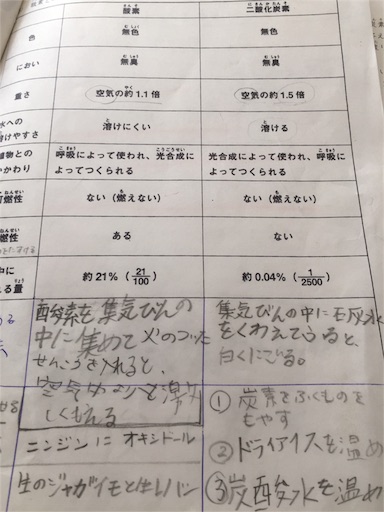 酸素
二酸化炭素
色
無色
無色
におい
無臭
無臭
重さ
空気の約1.1倍
空気の約1.5倍
水への
溶けやすさ
溶けにくい
溶ける
植物との
かかわり
呼吸によって使われ、光合成に
よってつくられる
光合成によって使われ、呼吸に
よってつくられる
可燃性
ない(燃えない)
ない(燃えない)
燃性
ある
ない
中に
る量
約21%(21/100)
約0.04%(1/2500)
酸素を集気びんの
中に集めて火のついた
せんこうを入れると、
空気中よりと激
しくもえる
集気びんの中に石灰水
をくわえて
白くにごる。
ニンジンにオキシドール
生のジャガイモと生レバー
①炭素をふくむものを
もやす
②ドライアイスを温め
③炭酸水を温め